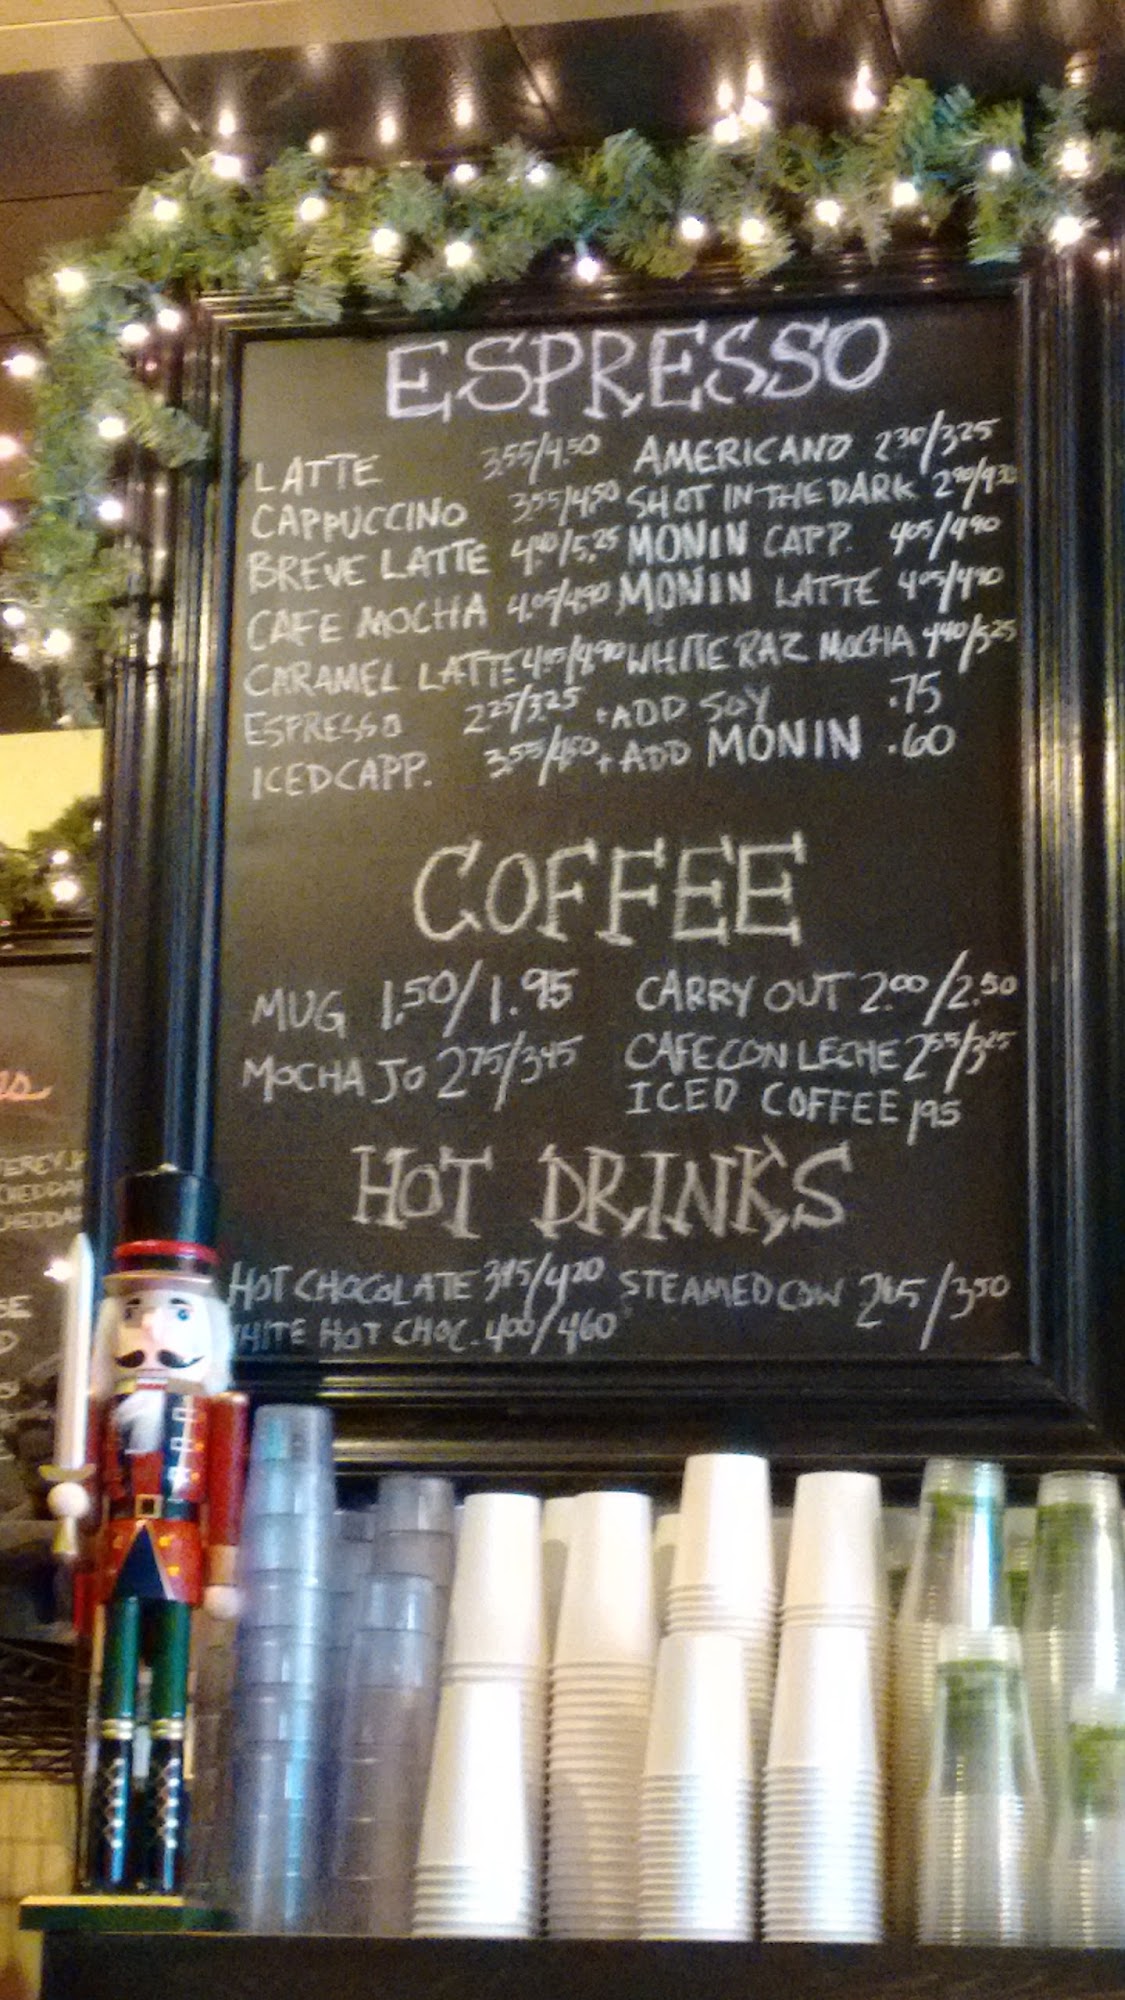 ESPRESSO
LATTE 3.55/4.50
CAPPUCCINO 3.55/4.50
BREVE LATTE 4.40/5.25
CAFE MOCHA 4.05/4.90
CARAMEL LATTE 4.05/4.90
ESPRESSO 2.25/3.25
ICED CAPP. 3.55/4.50
AMERICANO 2.30/3.25
SHOT IN THE DARK
MONIN CAPP. 4.05/4.90
MONIN LATTE 4.05/4.90
WHITE RAZ MOCHA 4.40/5.25
+ADD SOY .75
+ADD MONIN .60
COFFEE
MUG 1.50/1.95
MOCHA JO 2.75/3.45
CARRY OUT 2.00/2.50
CAFE CON LECHE 2.55/3.25
ICED COFFEE 1.95
HOT DRINK'S
HOT CHOCOLATE
HITE HOT CHOC. 4.00/4.60
STEAMED COW 2.65/3.50
CHEDDA